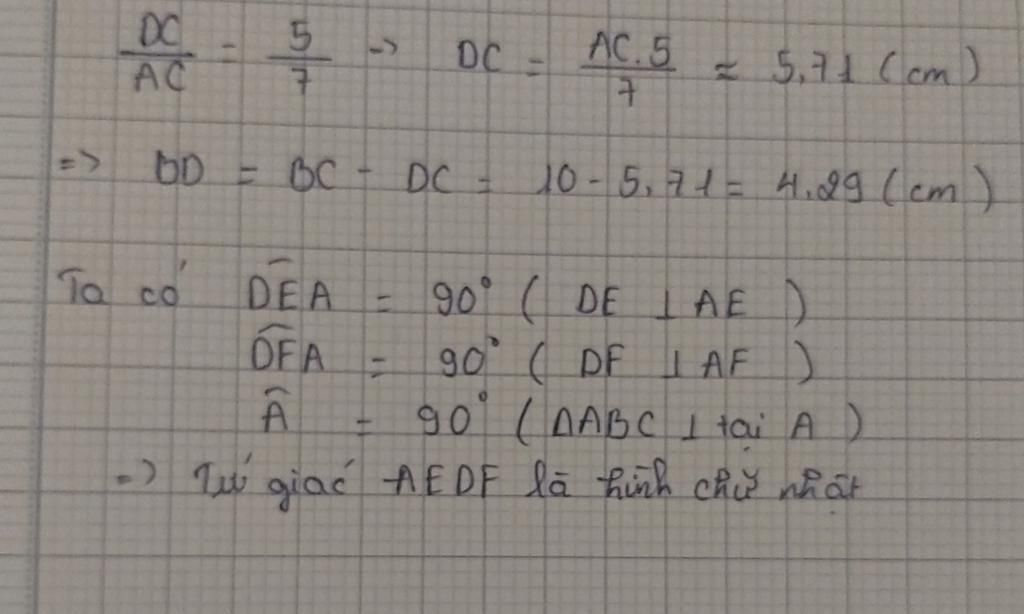 DC/AC = 5/7 -> DC = AC.5/7 = 5,71 (cm)
=> BD = BC - DC = 10 - 5,71 = 4,29 (cm)
Ta có D͡EA = 90° ( DE ⊥ AE )
D͡FA = 90° ( DF ⊥ AF )
Â = 90° (ΔABC ⊥ tại A )
=> Tứ giác AEDF là hình chữ nhật